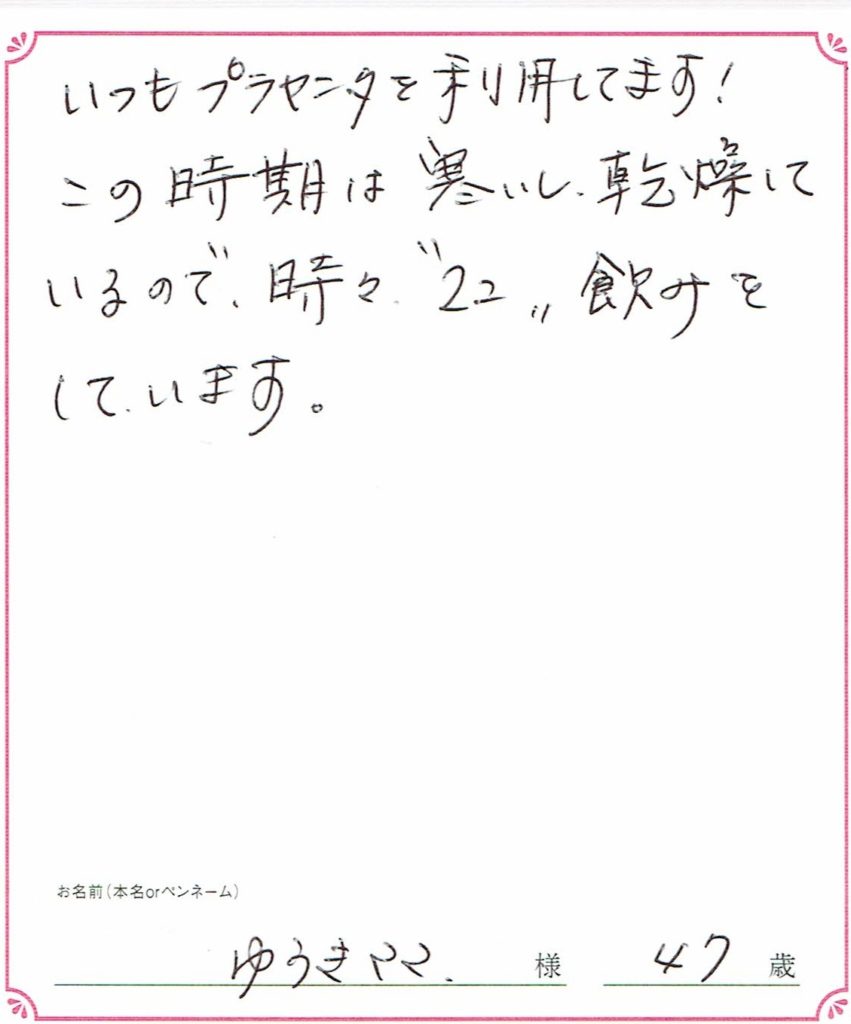 いつもプラセンタを利用してます!
この時期は寒いし、乾燥して
いるので、時々、〝2コ〟飲みを
しています。
お名前(本名orペンネーム)
ゆうきママ 様 47 歳